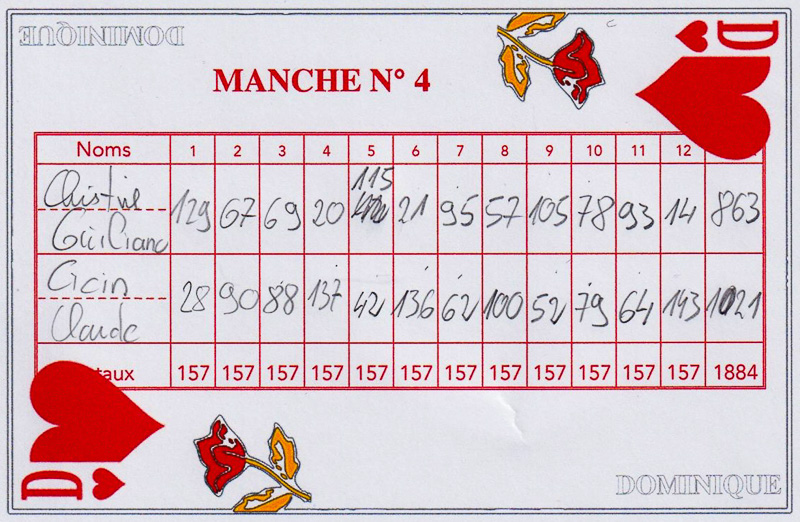 DOMINIQUE
D
MANCHE N° 4
Noms 1 2 3 4 5 6 7 8 9 10 11 12
Christine
129 67 69 20 115 21 95 57 105 78 93 14 863
Alain
28 90 88 137 42 136 62 100 52 79 64 143 1021
Claude
taux 157 157 157 157 157 157 157 157 157 157 157 157 1884
D
DOMINIQUE